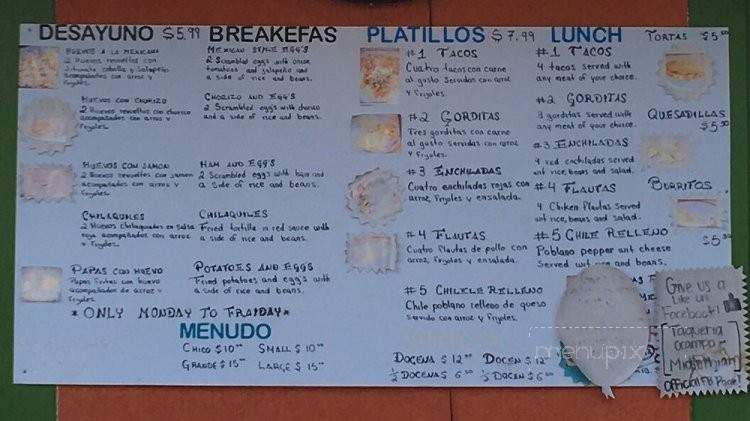 DESAYUNO $5.99 BREAKEFAS
HUEVOS A LA MEXICANA
2 Huevos revueltos con
Jitomate cebolla y Jalapeño
acompañados con arroz y
Frijoles
MEXICAN STYLE EGG'S
2 Scrambled egg's with onion
tomatoes and jalapeño and
a side of rice and beans.
HUEVOS CON CHORIZO
2 Huevos revueltos con chorizo
acompañados con arroz y
Frijoles
CHORIZO AND EGG'S
2 Scrambled egg's with chorizo
and a side of rice and beans.
HUEVOS CON JAMON
2 Huevos revueltos con Jamon
acompañados con arroz y
Frijoles
HAM AND EGG'S
2 Scrambled egg's with ham and
a side of rice and beans.
CHILAQUILES
2 Huevos chilaquiles en salsa
roja acompañados con arroz
y Frijoles
CHILAQUILES
Fried tortilla in red sauce with
a side of rice and beans.
PAPAS CON HUEVO
Papas fritas con huevo
acompañados de arroz y
Frijoles
POTATOES AND EGG'S
Fried potatoes and eggs with
a side of rice and beans.
* ONLY MONDAY TO FRAIDAY*
MENUDO
CHICO $10.00 SMALL $10.00
GRANDE $15.00 LARGE $15.00
PLATILLOS $7.99 LUNCH
#1 TACOS
Cuatro tacos con carne
al gusto Servidos con arroz
y Frijoles.
#1 TACOS
4 tacos served with
any meat of your choice.
#2 GORDITAS
Tres gorditas con carne
al gusto servidas con arroz
y Frijoles.
#2 GORDITAS
3 gorditas served with
any meat of your choice.
#3 ENCHILADAS
Cuatro enchiladas rojas con
arroz, Frijoles y ensalada.
#3 ENCHILADAS
4 red enchiladas served
wit rice, beans and salad.
#4 FLAUTAS
Cuatro Flautas de pollo con
arroz, Frijoles y ensalada.
#4 FLAUTAS
4 Chiken Flautas Served
wit rice, beans and salad.
#5 CHILELE RELLENO
Chile poblano relleno de queso
servido con arroz y Frijoles.
#5 CHILE RELLENO
Poblano pepper wit cheese
Served wit rice and beans.
DOCENA $12.00 DOCEN $12
1/2 DOCENA $6.50 1/2 DOCEN $6.50
TORTAS $5.50
QUESADILLAS
$5.50
BURRITOS
$5.50
Give us a
Like on
Facebook!
[Taqueria
Ocampo
Midlothian]
OFFICIAL FB Page!
menupix